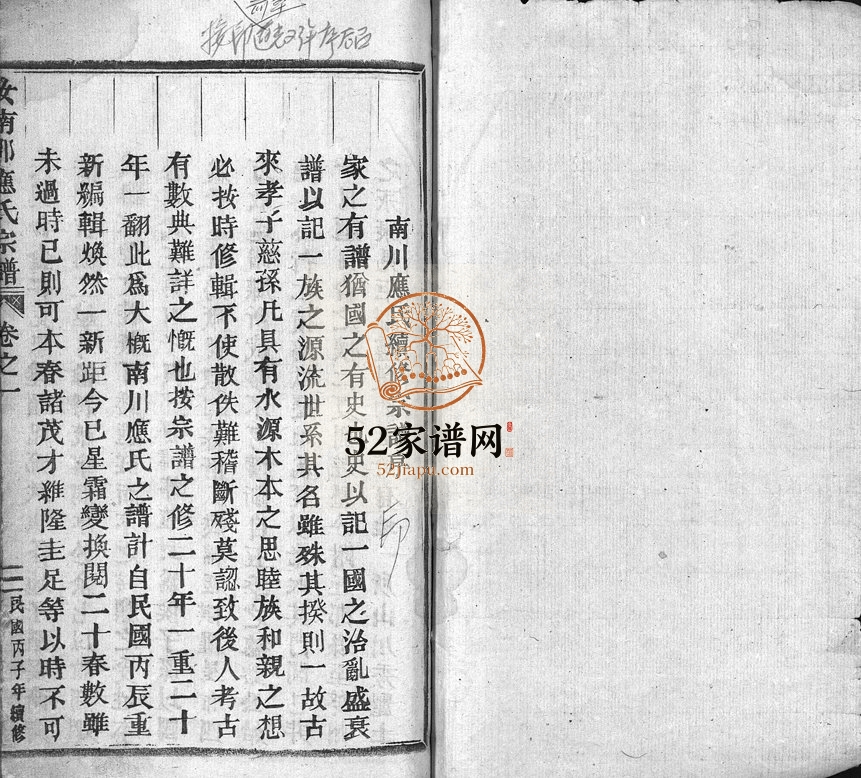 南川應氏續修宗譜序
家之有譜猶國之有史史以記一國之治亂盛衰
譜以記一族之源流世系其名雖殊其揆則一故古
來孝子慈孫凡具有水源木本之思睦族和親之想
必按時修輯不使散佚難稽斷殘莫認致後人考古
有數典難詳之慨也按宗譜之修二十年一重三十
年一翻此爲大慨南川應氏之譜計自民國丙辰重
新編輯煥然一新距今已星霜變換閱二十春數雖
未過時已則可本春諸茂才維隆圭足等以時不可
汝南郡應氏宗譜 卷之一 民國丙子年續修
印
52家谱网
52jiapu.com